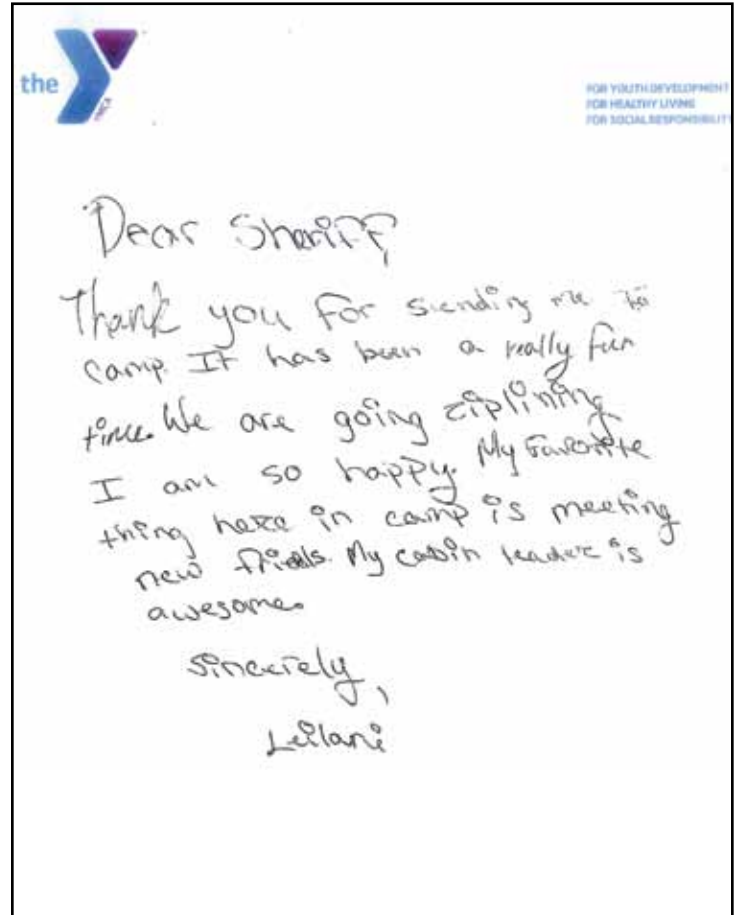 the
YMCA
FOR YOUTH DEVELOPMENT
FOR HEALTHY LIVING
FOR SOCIAL RESPONSIBILITY
Dear Sheriff,
Thank you for sending me to
camp. It has been a really fun
time. We are going ziplining
I am so happy. My favorite
thing here in camp is meeting
new friends. My cabin leader is
awesome.
Sincerely,
Leilani